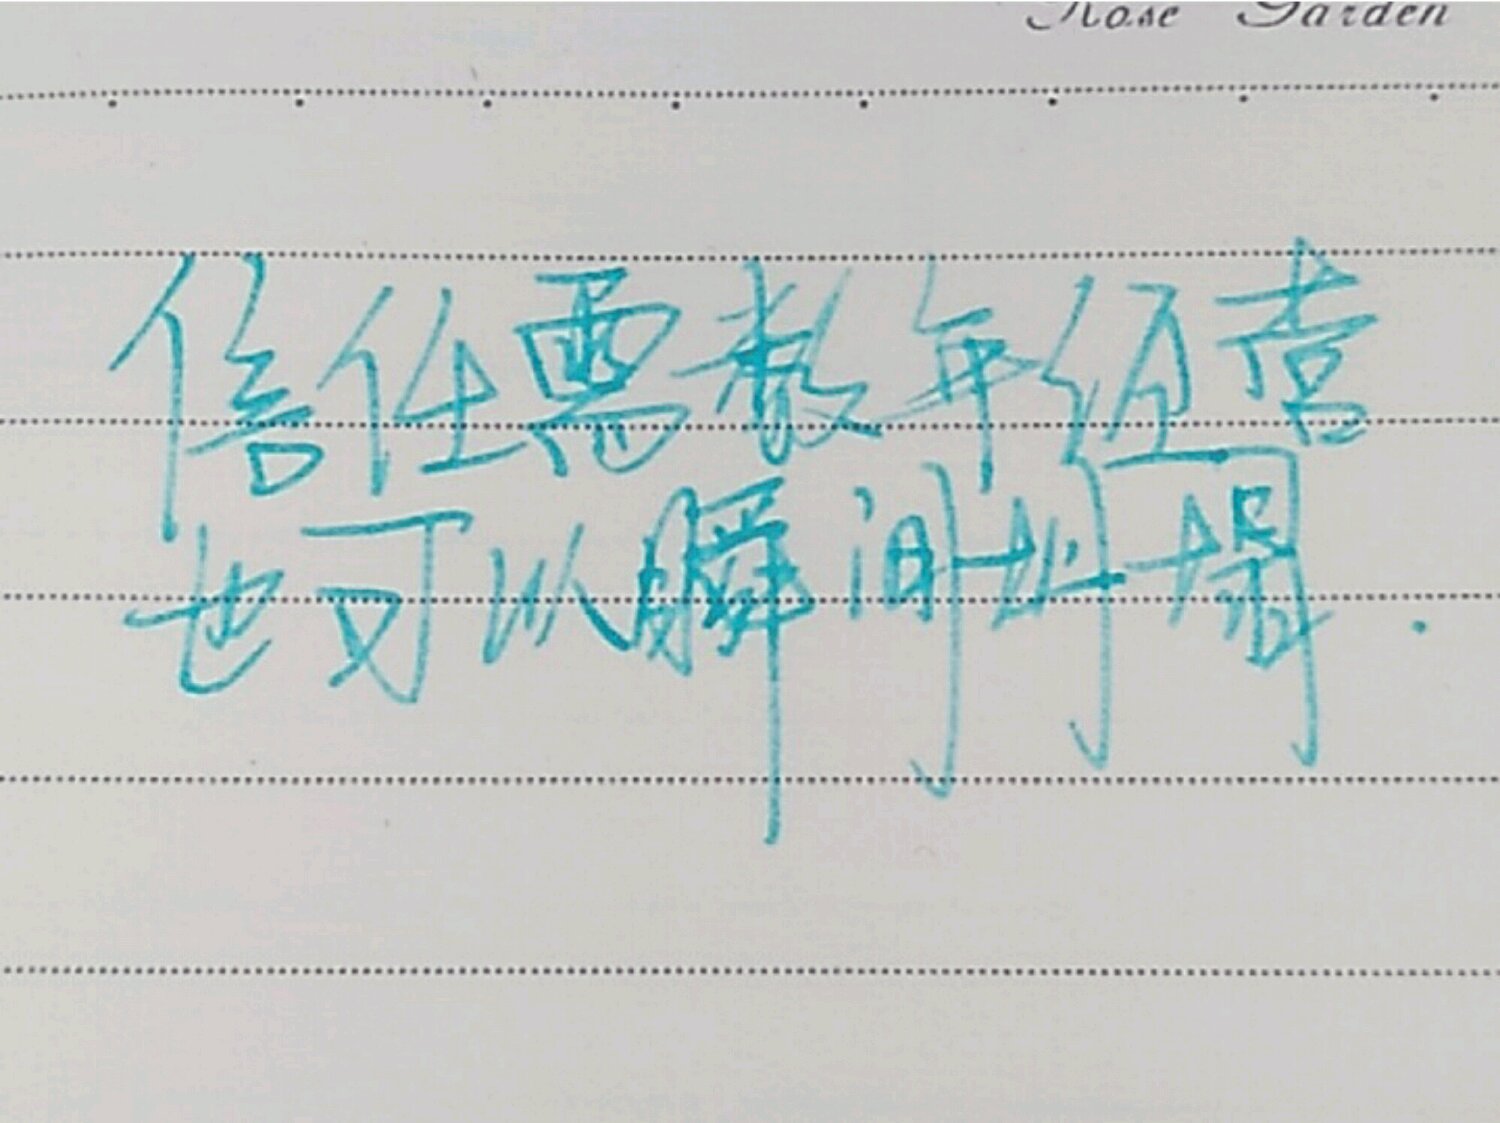 Rose Garden
信任需数年经营
也可以瞬间崩塌.